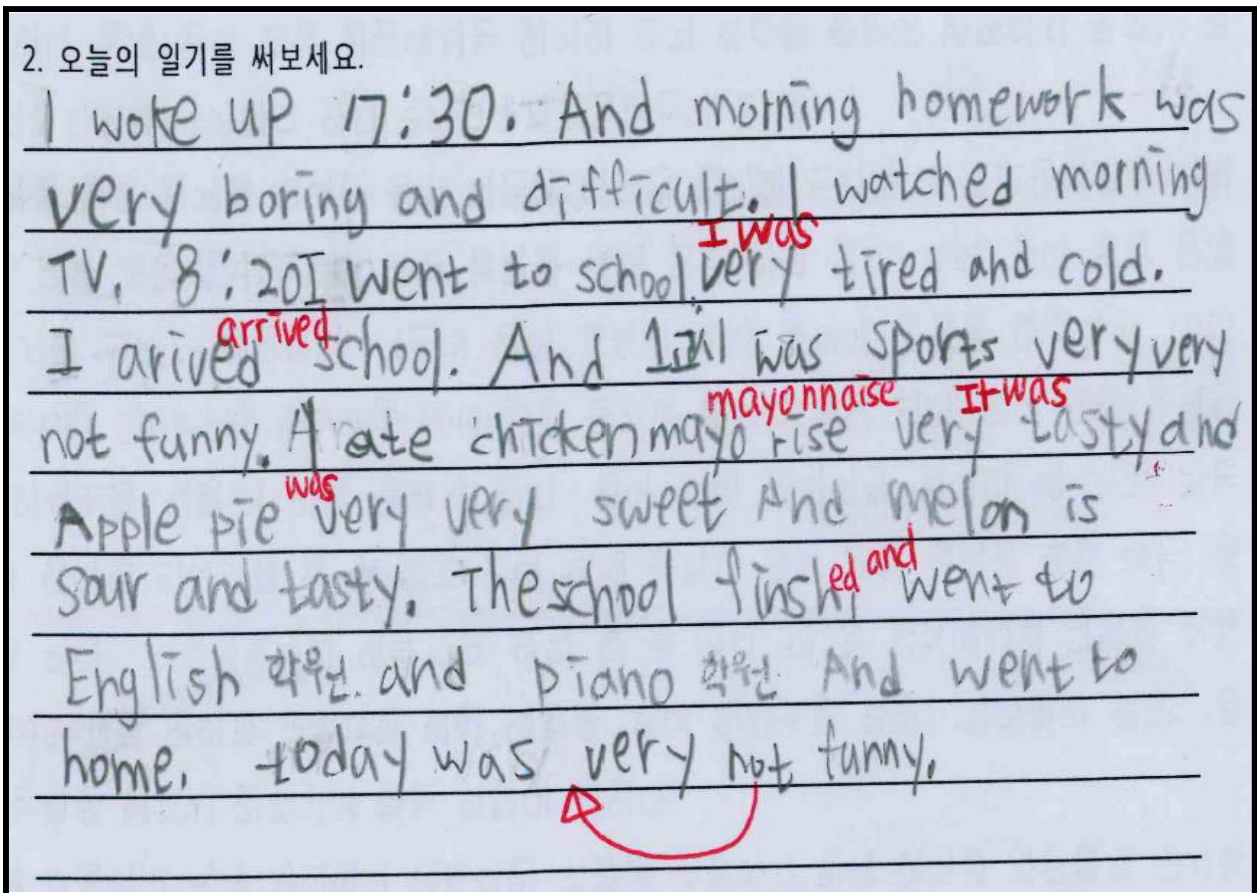 2. 오늘의 일기를 써보세요.
I woke up 7:30. And morning homework was
very boring and difficult. I watched morning
I was
TV. 8:20 I went to school. very tired and cold.
arrived
I arived school. And 1교시 was sports very very
mayonnaise It was
not funny. I ate chicken mayo rise very tasty and
was
Apple pie very very sweet And melon is
ed and
sour and tasty. The school finsh went to
English 학원. and piano 학원 And went to
home. today was very not funny.